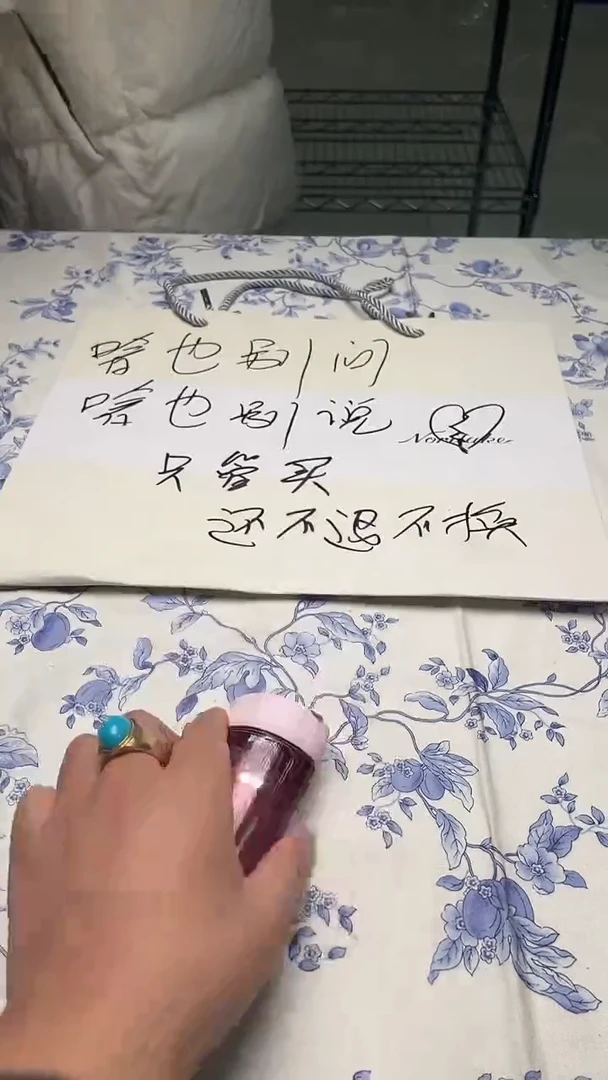 啥也别问
啥也别说
只管买
还不退不换